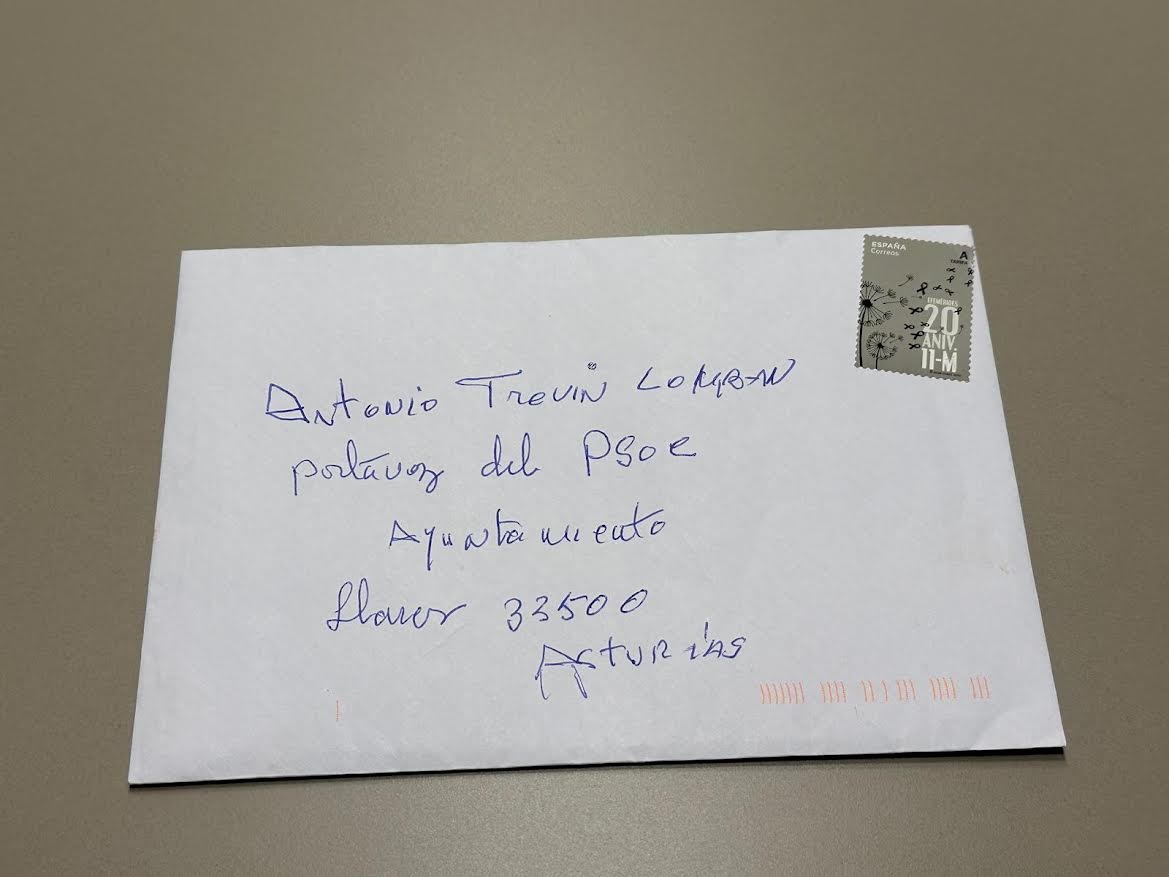 ESPAÑA
Correos
A
TARIFA
EFEMÉRIDES
20
ANIV.
11-M
Antonio Treviñ LOMBAN
portávoz del PSOE
Ayuntamiento
Llanes 33500
ASTURIAS